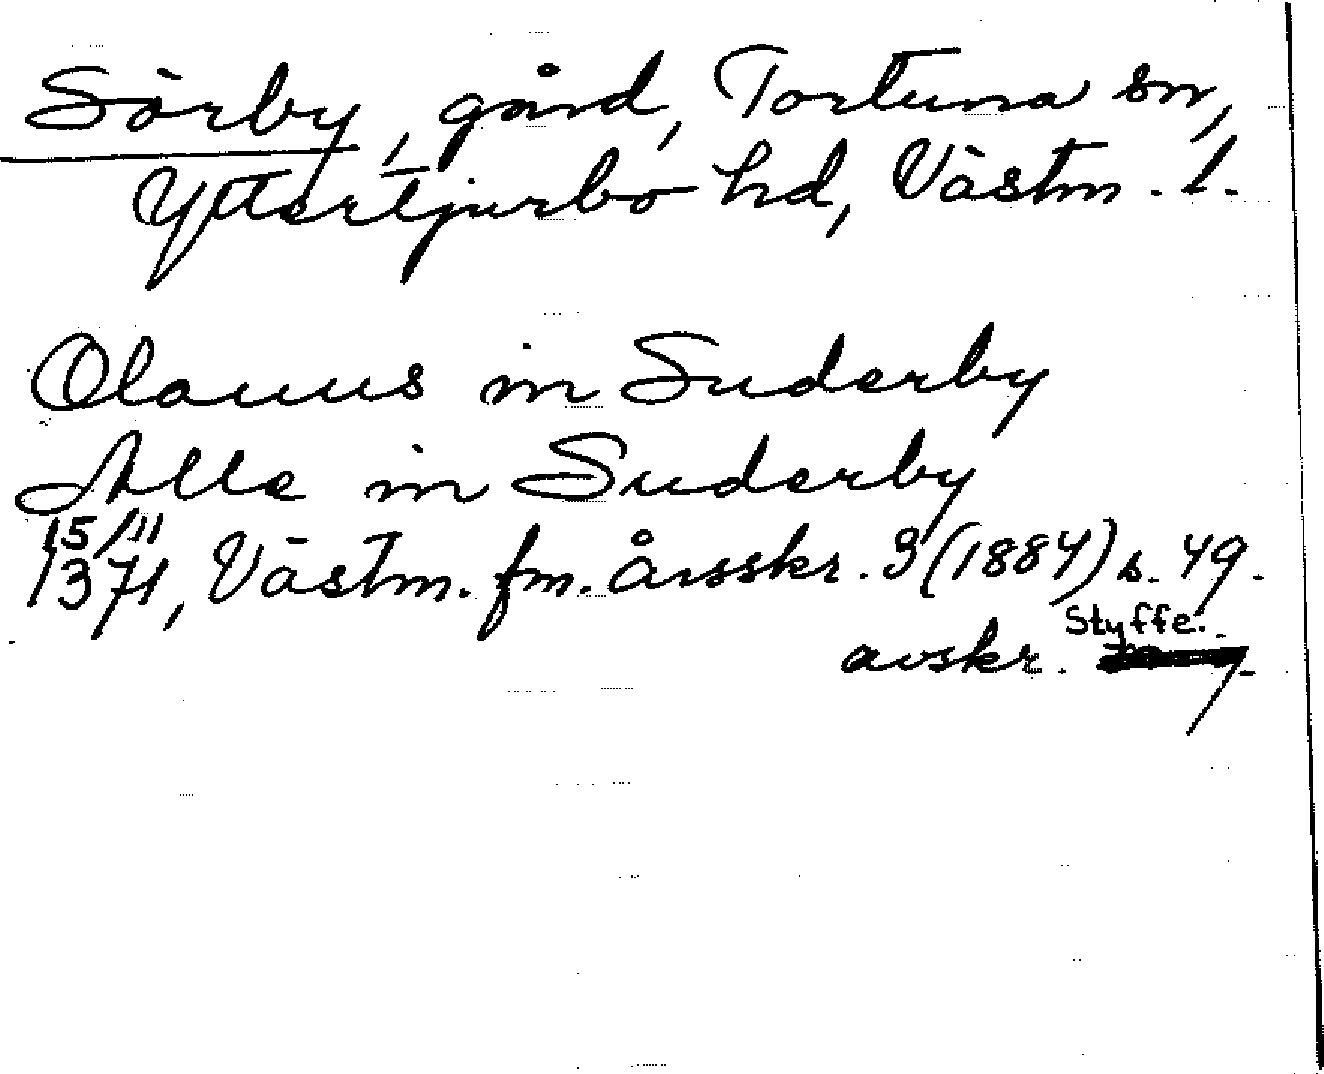 Sörby, gård, Tortuna sn,
Yttertjurbo hd, Västm. l.
Olauus in Suderby
Alle in Suderby
15/11
1371, Västm. fm. årsskr. 3 (1884) s. 49.
Styffe.
avskr.